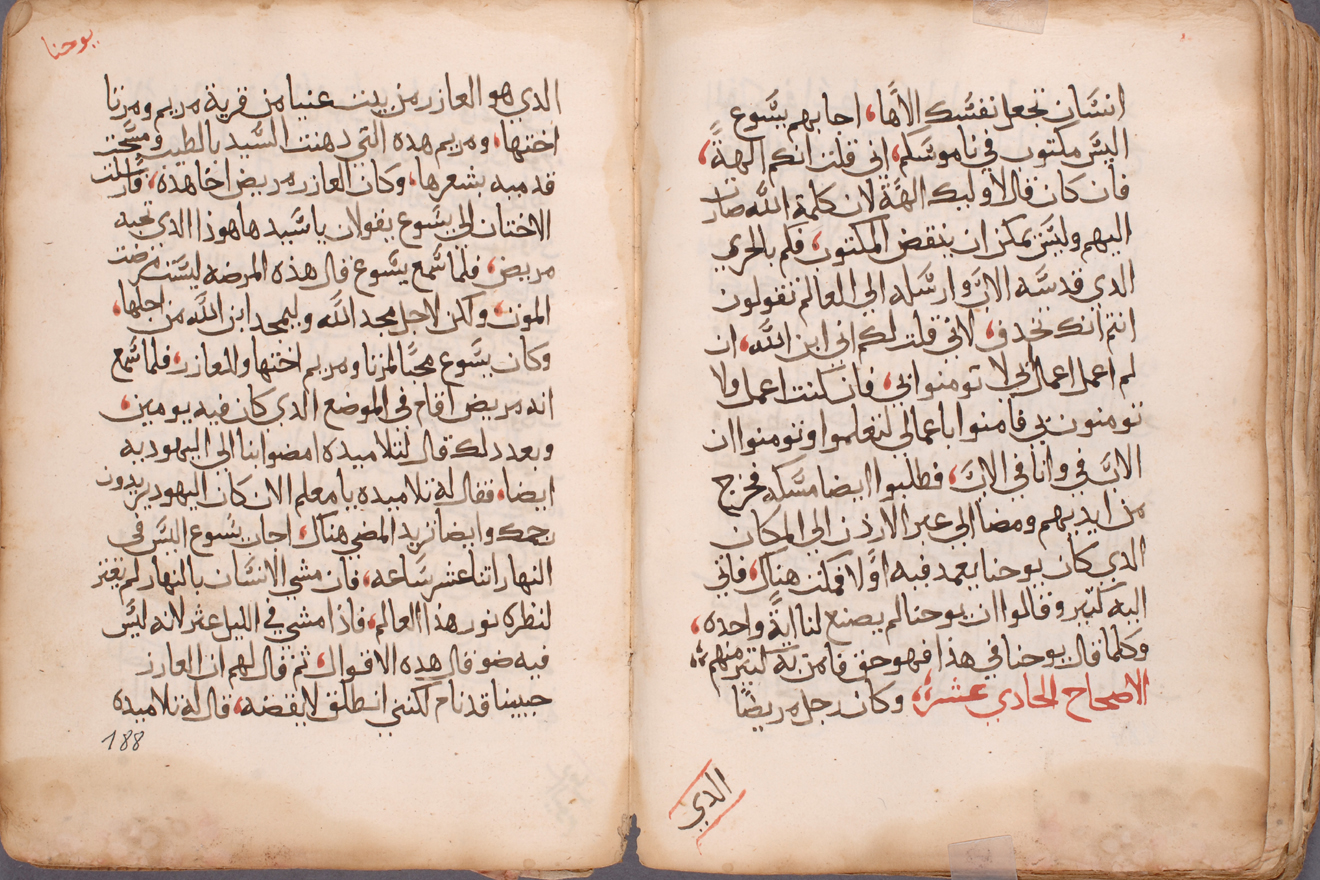 انسان تجعل نفسك الاها، اجابهم يسوع
اليس مكتوب في ناموسكم، اني قلت انكم الهة،
فان كان قال لاوليك الهة لان كلمة الله صارت
اليهم وليس يمكن ان ينقض المكتوب، فكم بالحري
الدي قدسه الاب وارسله الي العالم تقولون
انتم انك تجدف، لاني قلت لكم اني ابن الله، ان
لم اعمل اعمال ابي لا تومنوا بي، فان كنت اعمل ولا
تومنون بي فامنوا باعمالي لتعلموا وتومنوا ان
الاب في وانا في الاب، فطلبوا ايضا مسكه فخرج
من ايديهم ومضا الي عبر الاردن الي المكان
الدي كان يوحنا يعمد فيه اولا فمكث هناك، فاتي
اليه كثير وقالوا ان يوحنا لم يصنع لنا اية واحده،
وكلما قال يوحنا في هذا فهو حق فامن به كثير منهم،
الاصحاح الحادي عشر، وكان رجل مريضا
الدي
يوحنا
الدي هو العازر من بيت عنيا من قرية مريم ومرتا
اختها، ومريم هده التي دهنت السيد بالطيب ومسحت
قدميه بشعرها، وكان العازر مريض اخا هده، فارسلت
الاختان الي يسوع يقولان يا سيد هاهوذا الدي تحبه
مريض، فلما سمع يسوع قال هذه المرضه ليست مرضت
الموت، ولكن لاجل مجد الله وليمجد ابن الله من اجلها،
وكان يسوع محبا لمرتا ومريم اختها والعازر، فلما سمع
انه مريض اقام في الموضع الدي كان فيه يومين،
وبعد دلك قال لتلاميده امضوا بنا الي اليهوديه
ايضا، فقال له تلاميده يا معلم الان كان اليهود يريدون
رجمك وايضا تريد المضي هناك، اجاب يسوع اليس في
النهار اتنا عشر ساعه، فان مشي الانسان بالنهار لم يعثر
لنظره نور هذا العالم، فاذا مشي في الليل عثر لانه ليس
فيه ضو قال هده الاقوال، ثم قال لهم ان العازر
حبيبنا قد نام لكنني انطلق لايقضه، قال له تلاميده
188